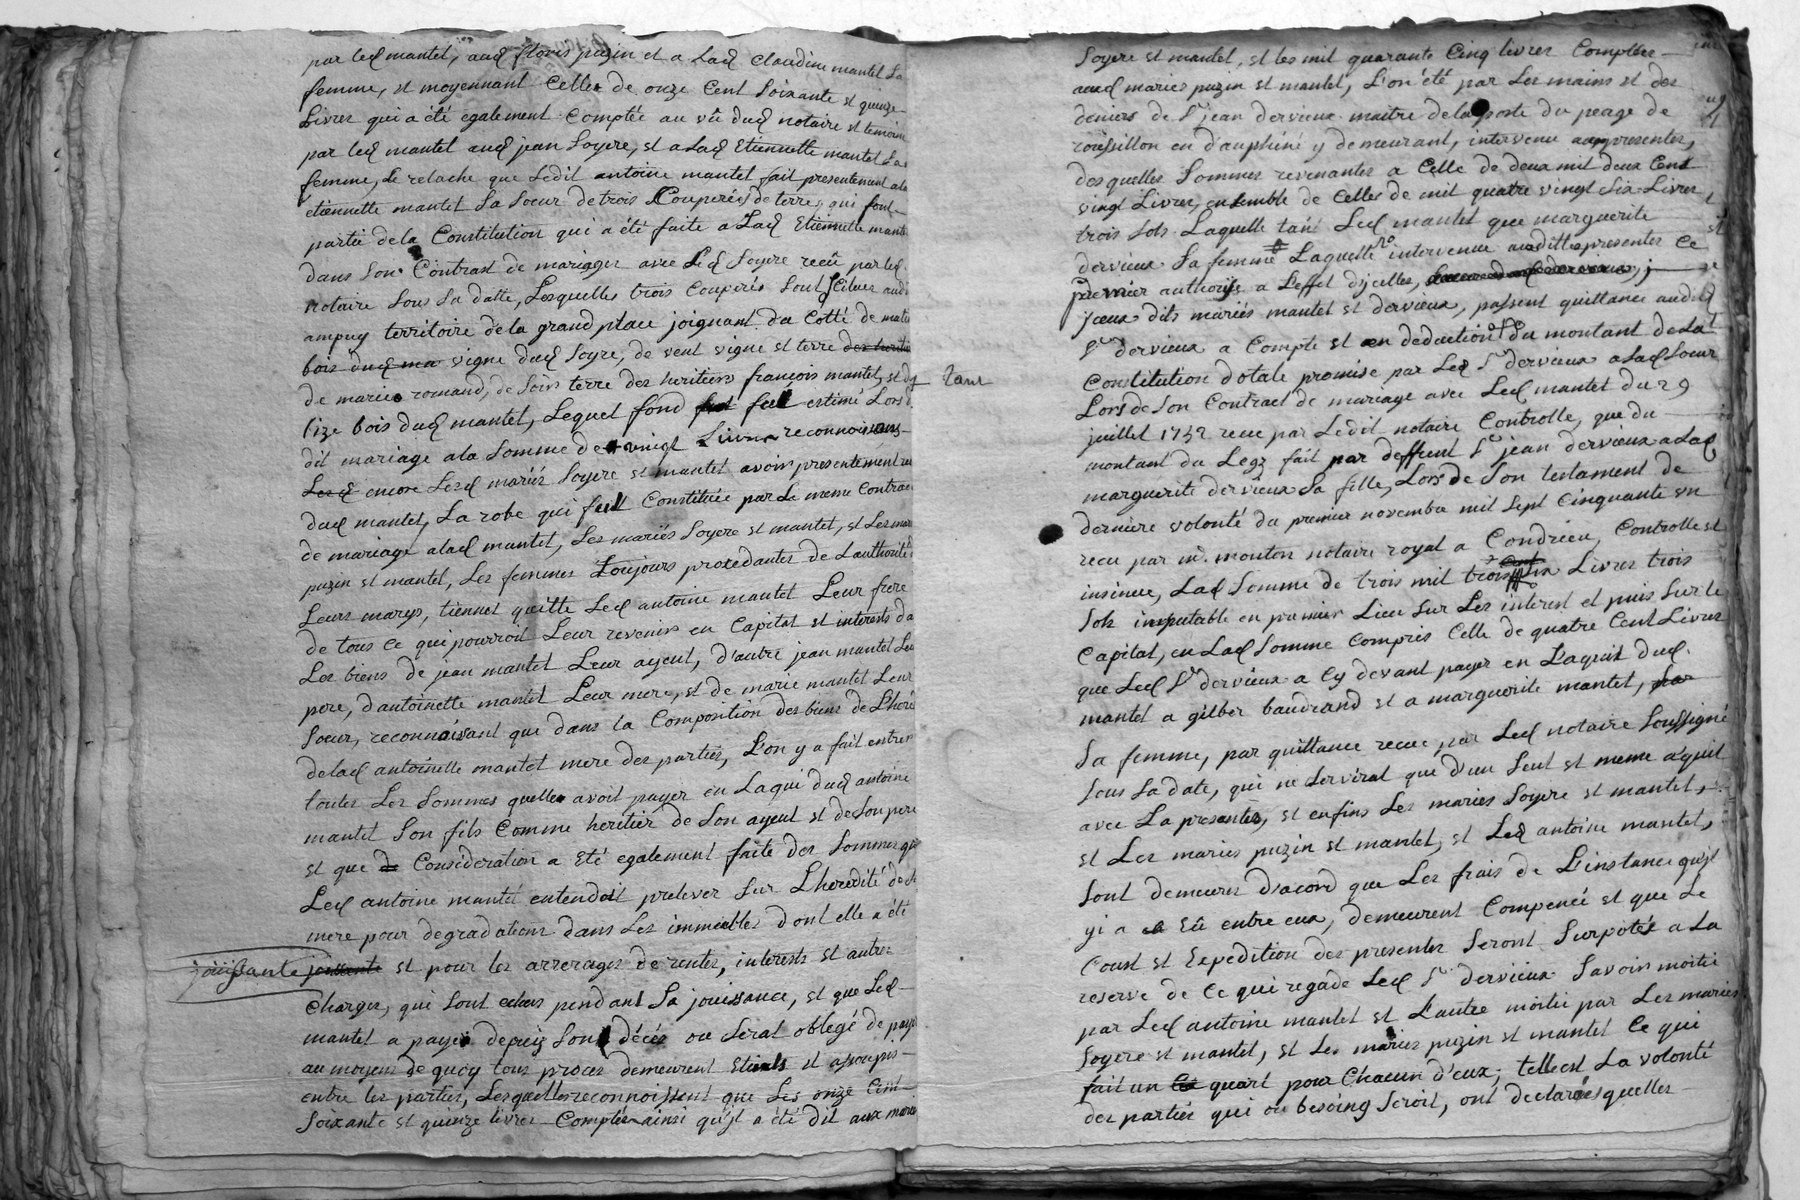 par led mantet, aud floris puzin et a lad Claudine mantet sa
femme, et moyennant Celle de onze Cent soixante et quinze
Livres qui a été egalement Comptée au vû dud notaire et temoins
par led mantet aud jean Soyere, et a lad Etiennette mantet sa
femme, Le relache que Ledit antoine mantet fait presentement a la
etiennette mantet sa soeur de trois Couperées de terre, qui font
partie de la Constitution qui a été faite a Lad Etiennette mantet
dans son Contrast de mariage avec Led Soyere reçû par led
notaire sous sa datte, Lesquelles trois Couperés sont scituer aud
ampuy territoire de la grand place joignant du Cotté de matin
bois dud ma vigne dud Soyre, de vent vigne et terre des heritie
de maries romand, de soir terre des heritiers françois mantet, et de
bize bois dud mantet, Lequel fond fut fut estimé Lors d tant
dit mariage a la somme de vingt Livres reconnoissans
Lesd encore Lesd mariés Soyere et mantet avoir presentement reçu
dud mantet, La robe qui fut Constituée par Le meme Contract
de mariage a lad mantet, Les mariés Soyere et mantet, et Les mariés
puzin et mantet, Les femmes Toujours procedantes de Lauthorité de
Leurs marys, tiennet quitte Led antoine mantet Leur frere
de tous Ce qui pourroit Leur revenir en Capital et interests da
Les biens de jean mantet Leur ayeul, d'autre jean mantet Leur
pere, d'antoinette mantet Leur mere, et de marie mantet Leur
soeur, reconnoisant que dans la Composition des biens de L'heré
de lad antoinette mantet mere des parties, L'on y a fait entrer
toutes Les sommes quelle avoit payer en Laquit dud antoine
mantet son fils Comme heritier de son ayeul et de son pere
et que de Consideration a été egalement faite des sommes que
Led antoine mantet entendoit prelever sur L'heredité de sa
mere pour degradations dans Les immeubles dont elle a été
jouissante jouissante et pour les arrerages de rentes, interests et autres
Charges, qui sont echus pendant sa jouissance, et que Led
mantet a payer depuis son décés ou serat oblegé de payer
au moyens de quoy tous proces demeurent Eteints et assoupis
entre les parties, Lesquelles reconnoissent que Les onze Cent
soixante et quinze livres Comptée ainsi qu'il a été dit aux maries
Soyere et mantet, et les mil quarante Cinq livres Comptées
aud maries puzin et mantet, L'on été par Les mains et des
deniers de Sr jean dervieux maitre de la poste du peage de
roussillon en dauphiné y demeurant, intervenu aux presentes,
desquelles sommes revenantes a Celle de deux mil deux Cent
vingt Livres, ensemble de Celles de mil quatre vingt six Livres
trois sols Laquelle tant Led mantet que marguerite
dervieux sa femme Laquelle intervenue audittes presentes Ce
premier authorise a Leffet d'jcelles,
jceux dits mariés mantet et dervieux, passent quittance aud
Sr dervieux a Compte et en deduction du montant de La
Constitution dotale promise par Led Sr dervieux a Lad soeur
Lors de son Contract de mariage avec Led mantet du 29
juillet 1752 recu par Ledit notaire Controlle, que du
montant du Legz fait par deffunt Sr jean dervieux a Lad
marguerite dervieux sa fille, Lors de son testament de
derniere volonté du premier novembre mil sept Cinquante un
recu par me mouton notaire royal a Condrieu, Controlle et
insinue, Lad somme de trois mil trois Cent six Livres trois
sols imputable en premier Lieu sur Les interest et puis sur le
Capital, en Lad somme Compris Celle de quatre Cent Livres
que Led Sr dervieux a Cy devant payer en L'aquit dud
mantet a gilber baudrand et a marguerite mantet, par
sa femme, par quittance recue par Led notaire soussigné
sous sa date, qui ne servirat que d'un seul et meme aquit
avec La presentes, et enfins Les maries Soyere et mantet,
et Les maries puzin et mantet, et Led antoine mantet,
sont demeures d'acord que Les frais de L'instance qu'il
yi a eû entre eux, demeurent Compencé et que Le
Coust et Expedition des presentes seront surpotés a La
reserve de Ce qui regade Led Sr dervieux savoir moitié
par Led antoine mantet et L'autre moitié par Les maries
Soyere et mantet, et Les maries puzin et mantet Ce qui
fait un quart pour Chacun d'eux; telle est La volonté
des parties qui ou besoing seroit, ont declarées quelles